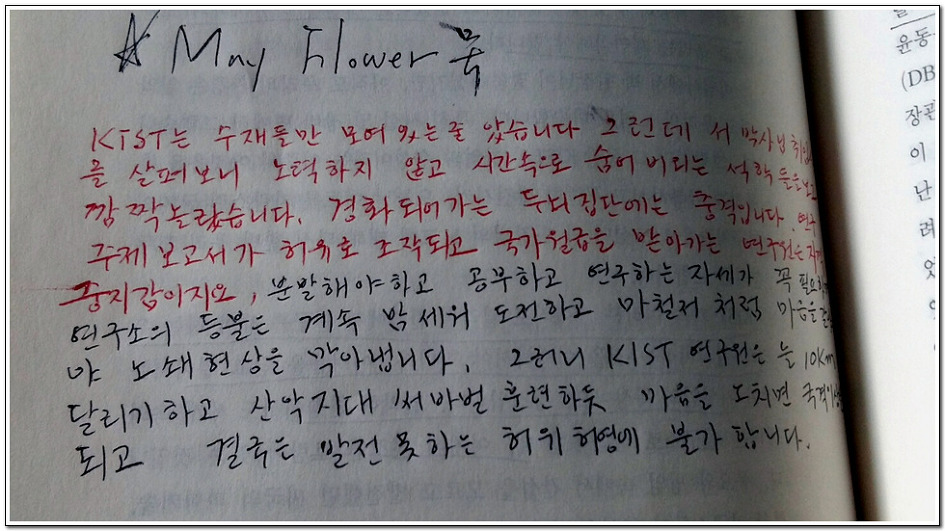 ☆ May Flower 꾹
KIST는 수재들만 모여 있는줄 았습니다 그런데 서 박사님 취임
을 살펴보니 노력하지 않고 시간속으로 숨어 버리는 석학들을보고
깜짝놀랐습니다. 경화되어가는 두뇌집단에는 충격입니다. 연구
주제 보고서가 허유로 조작되고 국가월급을 받아가는 연구원은
중지감이지요, 분발해야하고 공부하고 연구하는 자세가 꼭 필요
연구소의 등불은 계속 밤 세워 도전하고 마철저 처럼 마음을
야 노쇄현상을 막아냅니다. 그러니 KIST 연구원은 늘 10Km
달리기하고 산악지대 써바벌 훈련하듯 마음을 도치면
되고 결국은 발전못하는 허위허영에 불가합니다.
윤동
(DB
장관
이
난
례
었